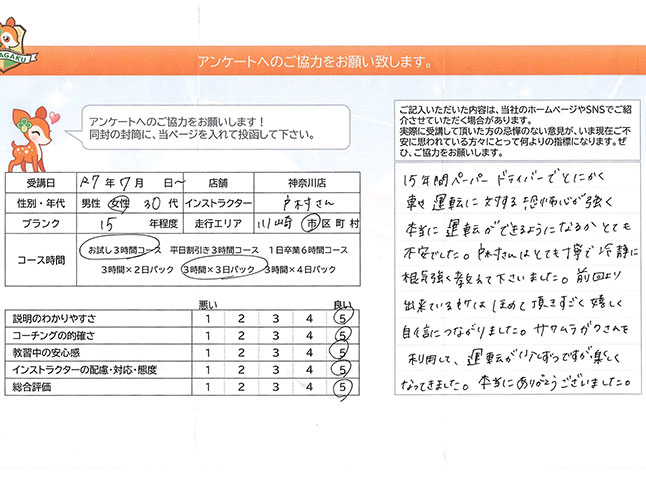 AGAKU
アンケートへのご協力をお願い致します。
アンケートへのご協力をお願いします！
同封の封筒に、当ページを入れて投函して下さい。
ご記入いただいた内容は、当社のホームページやSNSでご紹
介させていただく場合があります。
実際に受講して頂いた方の忌憚のない意見が、いま現在ご不
安に思われている方々にとって何よりの指標になります。ぜ
ひ、ご協力をお願いします。
受講日 R7年7月 日～ 店舗 神奈川店
性別・年代 男性 女性 30代 インストラクター 戸村さん
ブランク 15 年程度 走行エリア 川崎 市区町村
コース時間
お試し3時間コース 平日割引き3時間コース 1日卒業6時間コース
3時間×2日パック 3時間×3日パック 3時間×4日パック
悪い 良い
説明のわかりやすさ 1 2 3 4 5
コーチングの的確さ 1 2 3 4 5
教習中の安心感 1 2 3 4 5
インストラクターの配慮・対応・態度 1 2 3 4 5
総合評価 1 2 3 4 5
15年間ペーパードライバーでとにかく
運転に対する恐怖心が強く
本当に運転ができるようになるかとても
不安でした。戸村さんはとても丁寧で冷静に
根気強く教えて下さいました。前回より
出来ている時はほめて頂きすごく嬉しく
自信につながりました。サワムラガクさんを
利用して、運転が少しずつですが楽しく
なってきました。本当にありがとうございました。